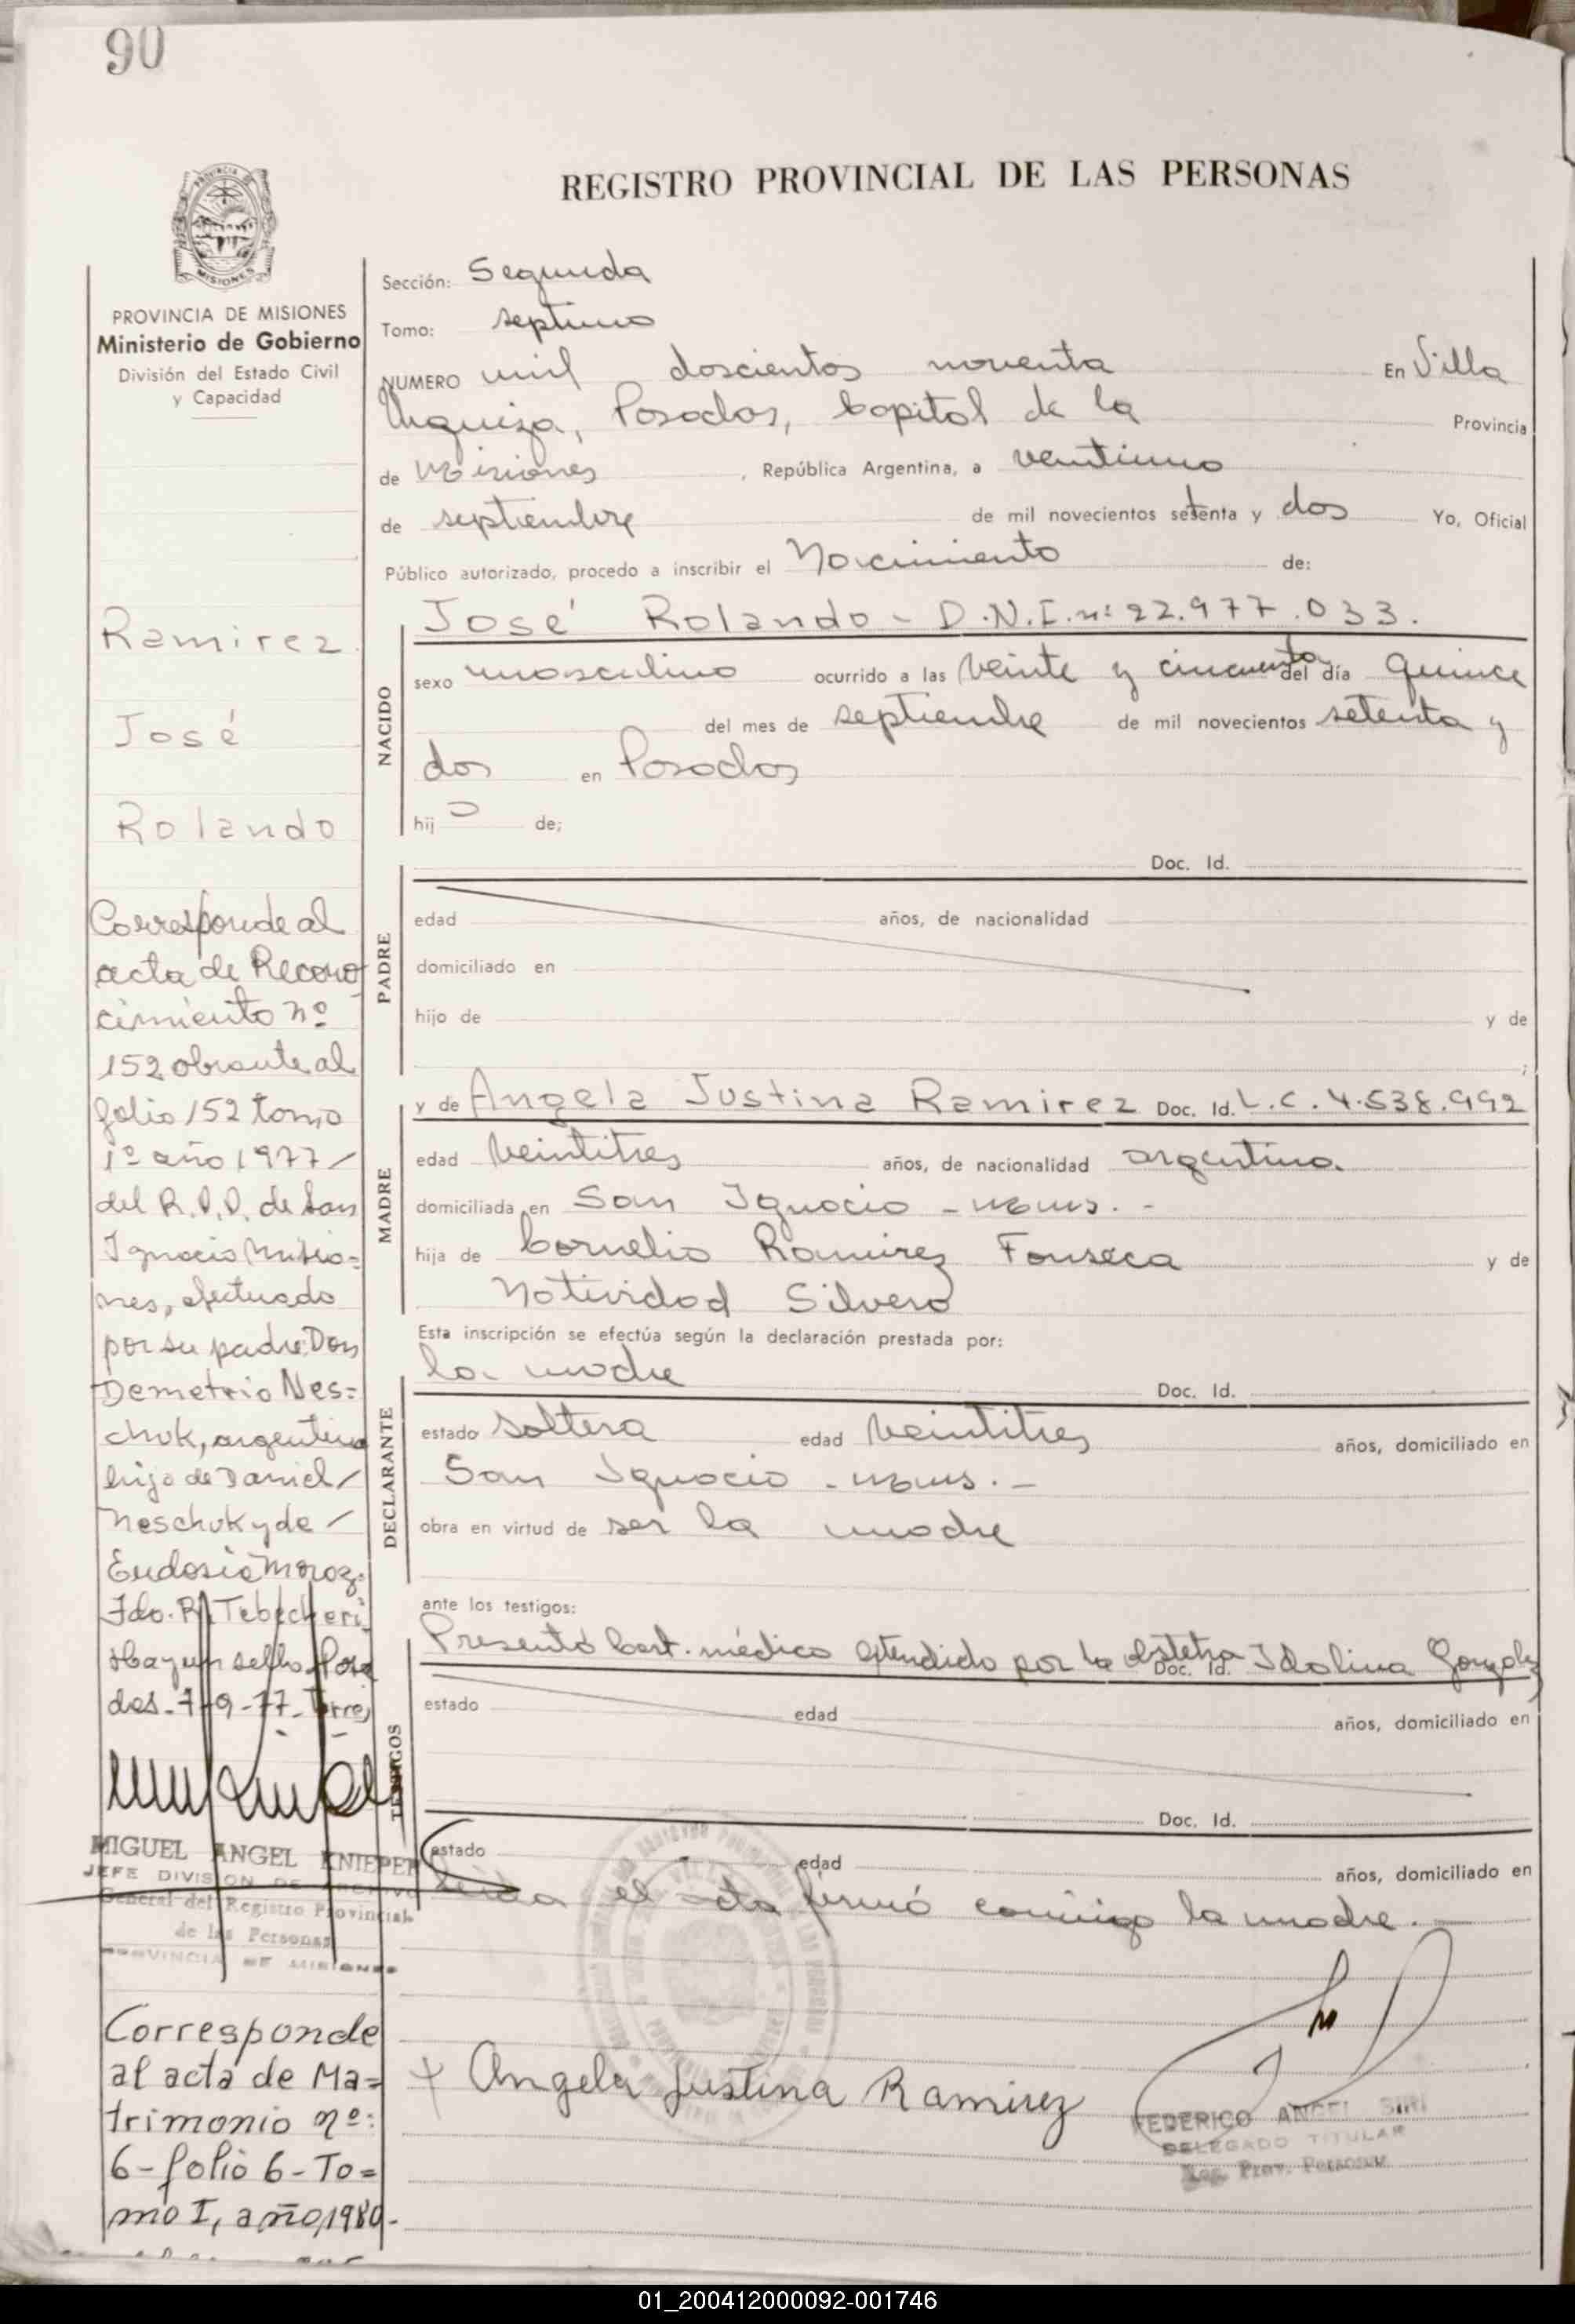 90
REGISTRO PROVINCIAL DE LAS PERSONAS
MISIONES
PROVINCIA DE MISIONES
Ministerio de Gobierno
División del Estado Civil
y Capacidad
Ramirez
José
Rolando
Corresponde al
acta de Recono
cimiento nº
152 obrante al
folio 152 tomo
1º año 1977/
del R.P.P. de San
Ignacio Misio=
nes, efectuado
por su padre: Don
Demetrio Nes=
chuk, argentino
hijo de Daniel/
Neschuk y de/
Eudosia Moroz.
Fdo. R. Tebecheri
Hay un sello. Posa
das-7-9-77-Torres
MIGUEL ANGEL KNIEPER
JEFE DIVISION DE ARCHIVO
General del Registro Provincial
de las Personas
PROVINCIA DE MISIONES
Corresponde
al acta de Ma=
trimonio nº:
6-folio 6-To=
mo I, año,1980-
Sección: Segunda
Tomo: septimo
NUMERO mil doscientos noventa En Villa
Urquiza, Posadas, Capital de la Provincia
de Misiones, República Argentina, a veintiuno
de septiembre de mil novecientos setenta y dos Yo, Oficial
Público autorizado, procedo a inscribir el Nacimiento de:
José Rolando - D.N.I. nº 22.977.033.
NACIDO
sexo masculino ocurrido a las veinte y cincuenta del día quince
del mes de septiembre de mil novecientos setenta y
dos en Posadas
hij o de;
PADRE
Doc. Id.
edad años, de nacionalidad
domiciliado en
hijo de y de
;
MADRE
y de Angela Justina Ramirez Doc. Id. L.C. 4.538.992
edad veintitres años, de nacionalidad argentina.
domiciliada en San Ignacio - Mnes. -
hija de Cornelio Ramirez Fonseca y de
Natividad Silvero
Esta inscripción se efectúa según la declaración prestada por:
DECLARANTE
la madre Doc. Id.
estado soltera edad veintitres años, domiciliado en
San Ignacio - Mnes. -
obra en virtud de ser la madre
ante los testigos:
TESTIGOS
Presentó Cert. médico extendido por la obstetra Doc. Id. Idolina Gonzalez
estado edad años, domiciliado en
Doc. Id.
estado edad años, domiciliado en
Leida el acta firmó conmigo la madre.
Angela Justina Ramirez
FEDERICO ANGEL SIRI
DELEGADO TITULAR
Reg. Prov. Personas
01_200412000092-001746